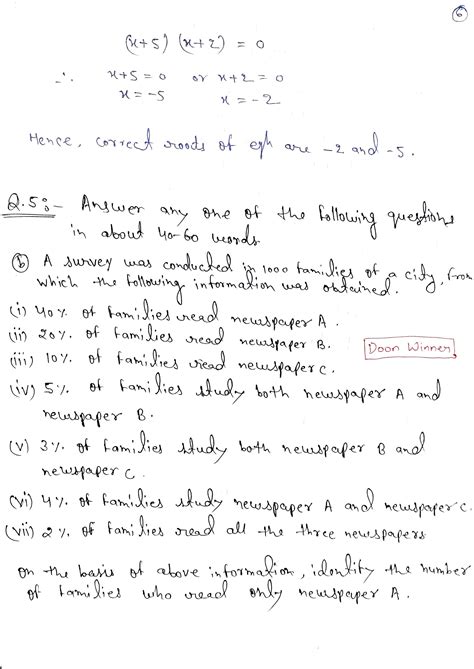 6
(x+5) (x+2) = 0
∴ x+5 = 0 or x+2 = 0
x = -5 x = -2
Hence, correct roods of eqn are -2 and -5.
Q.5:- Answer any one of the following questions
in about 40-60 words
(b) A survey was conducted in 1000 families of a city, from
which the following information was obtained.
(i) 40% of families read newspaper A.
(ii) 20% of families read newspaper B.
Doon Winner
(iii) 10% of families read newspaper C.
(iv) 5% of families study both newspaper A and
newspaper B.
(v) 3% of families study both newspaper B and
newspaper C.
(vi) 4% of families study newspaper A and newspaper C.
(vii) 2% of families read all the three newspapers
on the basis of above information, identify the number
of families who read only newspaper A.